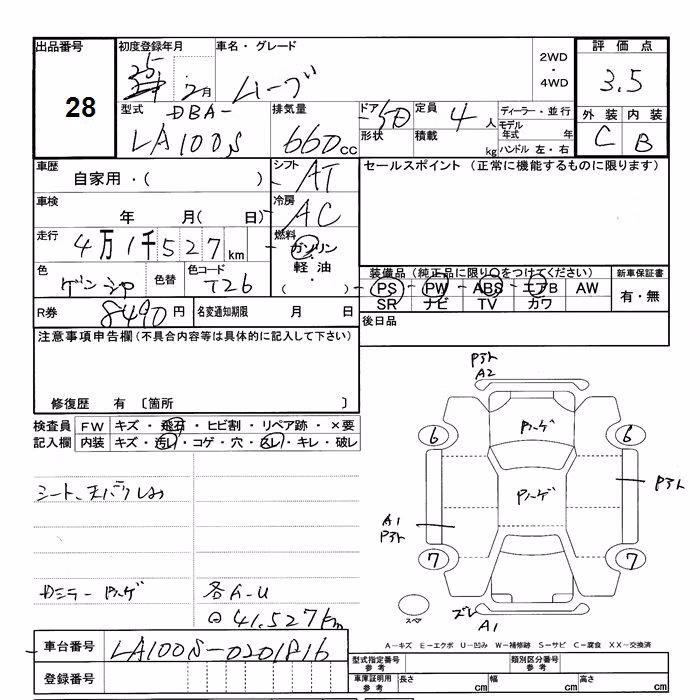 出品番号 初度登録年月 車名・グレード 2WD・4WD 評価点
28 25 2月 ムーブ 3.5
型式 DBA- 排気量 ドア 5D 定員 4人 ディーラー・並行 外装 内装
LA100S 660cc 形状 積載 kg モデル年式 年 C B
ハンドル 左・右
車歴 シフト AT セールスポイント (正常に機能するものに限ります)
自家用・( )
車検 年 月( 日) 冷房 AC
走行 4万1千527km 燃料 ガソリン・軽油・( )
色 色替 色コード T26 装備品 (純正品に限り○をつけてください) 新車保証書
PS PW ABS エアB AW 有・無
SR ナビ TV カワ
R券 8490円 名変通知期限 月 日 後日品
注意事項申告欄(不具合内容等は具体的に記入して下さい)
修復歴 有 〔箇所 〕
検査員 FW キズ・飛石・ヒビ割・リペア跡・×要
記入欄 内装 キズ・汚レ・コゲ・穴・スレ・キレ・破レ
シート、天バリ
Dミラー
各A-U
41,527km
A2
6 6
A1
7 7
スペア
A1
A-キズ E-エクボ U-凹み W-補修跡 S-サビ C-腐食 XX-交換済
車台番号 LA100S-0201816
登録番号
型式指定番号 参考 類別区分番号 参考
車庫証明用 参考 長さ cm 幅 cm 高さ cm